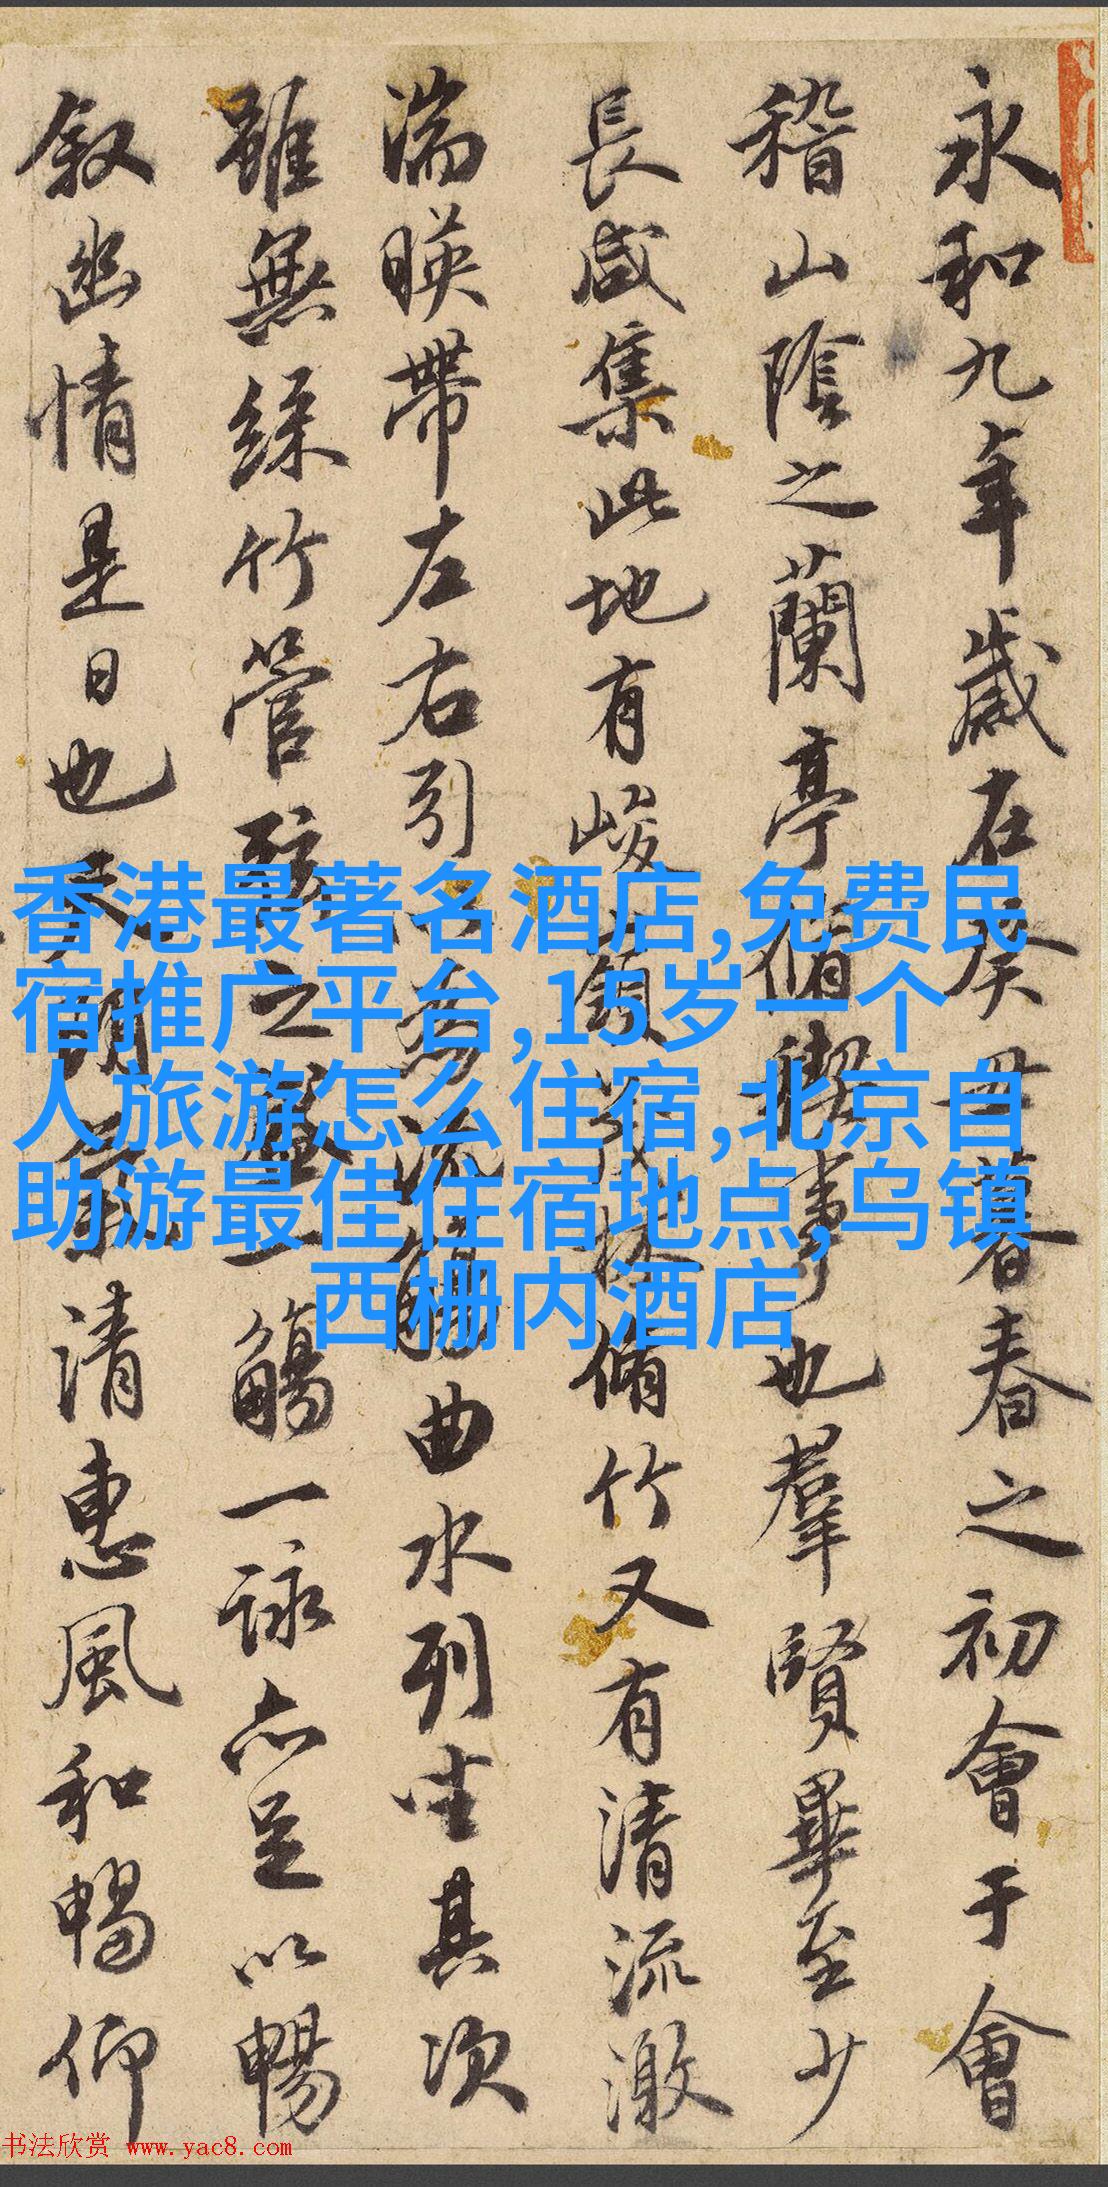 永和九年歲在癸丑暮春之初會于會
稽山陰之蘭亭脩禊事也羣賢畢至少
長咸集此地有峻領茂林脩竹又有清流激
湍暎帶左右引以為流觴曲水列坐其次
雖無絲竹管弦之盛一觴一詠亦足以暢
叙幽情是日也天朗氣清惠風和暢仰
香港最著名酒店,免费民
宿推广平台,15岁一个
人旅游怎么住宿,北京自
助游最佳住宿地点,乌镇
西栅内酒店
书法欣赏 www.yac8.com